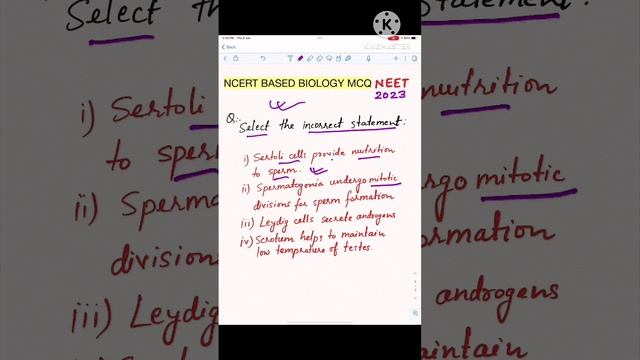 Select the incorrect statement:
K
KINEMASTER
Back
NCERT BASED BIOLOGY MCQ NEET
2023
Q:-
Select the incorrect statement:
i) Sertoli cells provide nutrition
to sperm.
ii) Spermatogonia undergo mitotic
divisions for sperm formation
iii) Leydig cells secrete androgens
iv) Scrotum helps to maintain
low temprature of testes.
i) Sertoli
nutrition
to sperm
ii) Sperma
rgo mitotic
divisions
rmation
iii) Leydig
androgens
intain